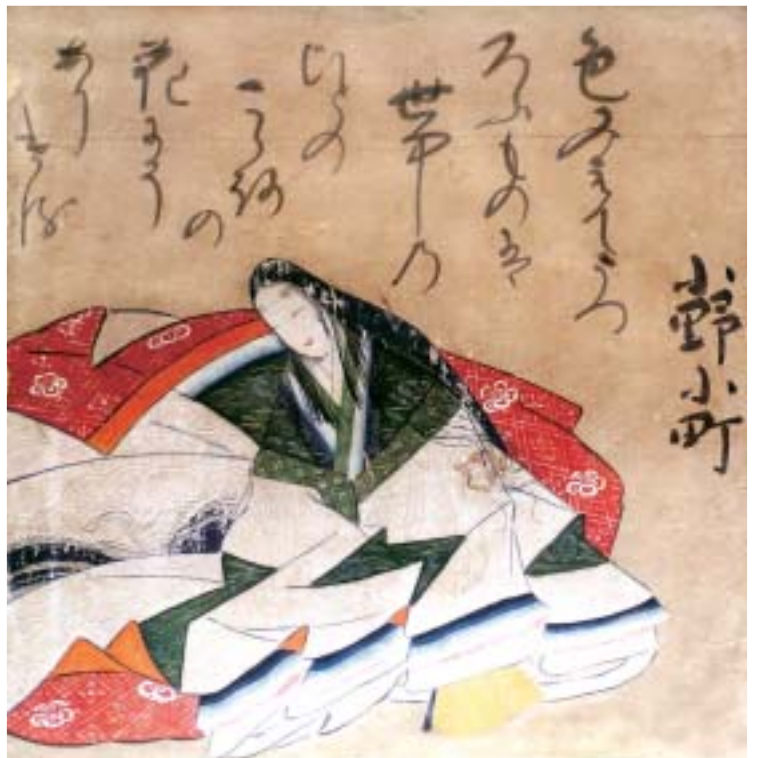 小野小町
色みえてうつ
ろふものは
世中の
ひとの
こゝろの
花にそ
あり
ける